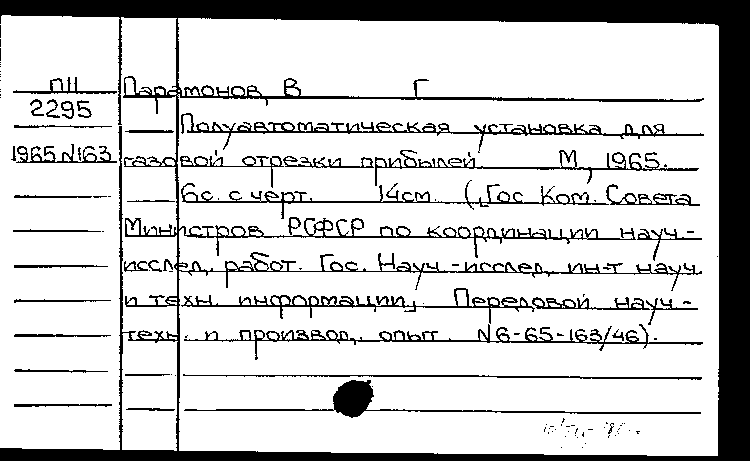 ПII
2295
1965 N163
Парамонов, В Г
Полуавтоматическая установка для
газовой отрезки прибылей М, 1965.
6с. с черт. 14см. („Гос Ком. Совета
Министров РСФСР по координации науч.-
исслед. работ. Гос. Науч.-исслед. ин-т науч.
и техн. информации„ Передовой науч.-
техн. и производ. опыт. N6-65-163/46).